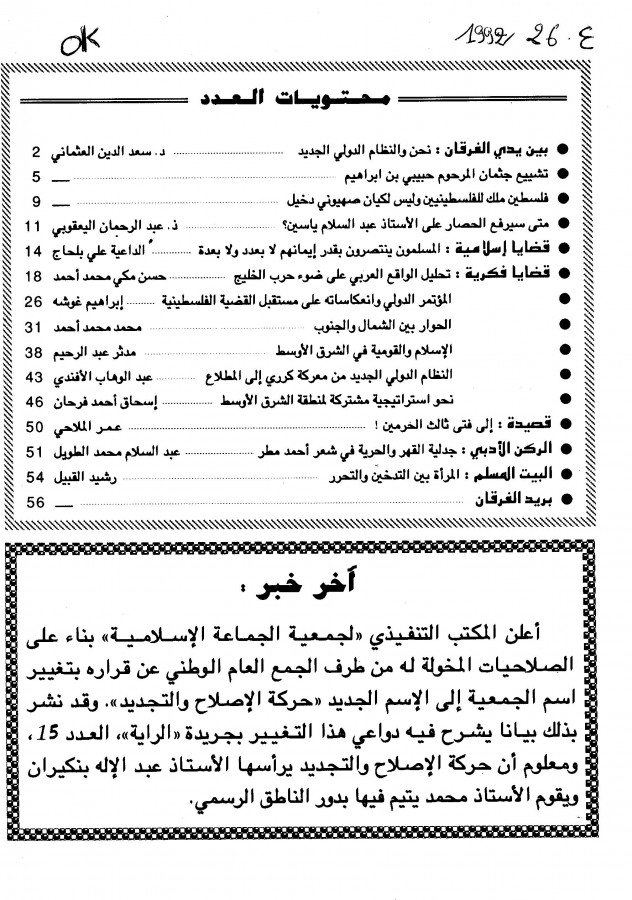 OK
1992 26 ع
محتويات العدد
● بين يدي الفرقان : نحن والنظام الدولي الجديد ........ د. سعد الدين العثماني 2
● تشييع جثمان المرحوم حبيبي بن ابراهيم ........ — 5
● فلسطين ملك للفلسطينيين وليس لكيان صهيوني دخيل ........ — 9
● متى سيرفع الحصار على الأستاذ عبد السلام ياسين؟ ........ ذ. عبد الرحمان اليعقوبي 11
● قضايا إسلامية : المسلمون ينتصرون بقدر إيمانهم لا بعدد ولا بعدة ........ الداعية علي بلحاج 14
● قضايا فكرية : تحليل الواقع العربي على ضوء حرب الخليج ........ حسن مكي محمد أحمد 18
● المؤتمر الدولي وانعكاساته على مستقبل القضية الفلسطينية ........ إبراهيم غوشه 26
● الحوار بين الشمال والجنوب ........ محمد محمد أحمد 31
● الإسلام والقومية في الشرق الأوسط ........ مدثر عبد الرحيم 38
● النظام الدولي الجديد من معركة كرري إلى المطلاع ........ عبد الوهاب الأفندي 43
● نحو استراتيجية مشتركة لمنطقة الشرق الأوسط ........ إسحاق أحمد فرحان 46
● قصيدة : إلى فتى ثالث الحرمين ! ........ عمر الملاحي 50
● الركن الأدبي : جدلية القهر والحرية في شعر أحمد مطر ........ عبد السلام محمد الطويل 51
● البيت المسلم : المرأة بين التدخين والتحرر ........ رشيد القبيل 54
● بريد الفرقان ........ — 56
آخر خبر :
أعلن المكتب التنفيذي «لجمعية الجماعة الإسلامية» بناء على
الصلاحيات المخولة له من طرف الجمع العام الوطني عن قراره بتغيير
اسم الجمعية إلى الإسم الجديد «حركة الإصلاح والتجديد». وقد نشر
بذلك بيانا يشرح فيه دواعي هذا التغيير بجريدة «الراية»، العدد 15،
ومعلوم أن حركة الإصلاح والتجديد يرأسها الأستاذ عبد الإله بنكيران
ويقوم الأستاذ محمد يتيم فيها بدور الناطق الرسمي.